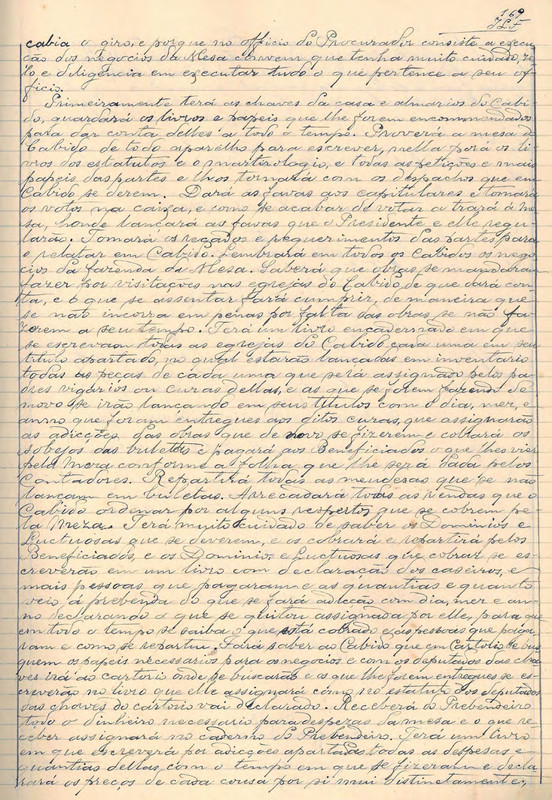 169
cabia o giro, e porque no officio do Procurador consiste a execu-
ção dos negocios da Mesa convem que tenha muito cuidado, ze-
lo e diligencia em executar tudo o que pertence a seu of-
ficio.
Primeiramente terá as chaves da casa e almarios do Cabi-
do, guardará os livros e papeis que lhe forem encommendados
para dar conta delles a todo o tempo. Proverá a mesa do
Cabido de todo aparelho para escrever, nella porá os li-
vros dos estatutos e o martirologio, e todas as petições e mais
papeis das partes e lhos tornará com os despachos que em
Cabido se derem. Dará as favas aos capitulares e tomará
os votos na caixa, e como se acabar de votar a trará á me-
sa, onde lançará as favas que o Presidente e elle regu-
larão. Tomará os recados e requerimentos das partes para
o relatar em Cabido. Lembrará em todos os Cabidos os nego-
cios da fazenda da Mesa. Saberá que obras se mandaram
fazer por visitações nas egrejas do Cabido, de que dará con-
ta, e o que se assentar fará cumprir, de maneira que
se não incorra em penas por falta das obras se não fa-
zerem a seu tempo. Terá um livro encadernado em que
se escrevam todas as egrejas do Cabido, cada uma em seu
titulo apartado, no qual estarão lançadas em inventario
todas as peças de cada uma que será assignado pelos pa-
dres vigarios ou curas dellas, e as que se forem fazendo de
novo se irão lançando em seus titulos com o dia, mez, e
anno que foram entregues aos ditos curas, que assignarão
as adicções das obras que de novo se fizerem e cobrará os
sobejos das buletas e pagará aos Beneficiados o que lhes vier
pela Meza conforme a folha que lhe será dada pelos
Contadores. Repartirá todas as meudesas que se não
lançam em buletas. Arrecadará todas as rendas que o
Cabido ordenar por alguns respeitos que se cobrem pe-
la Meza. Terá muito cuidado de saber os Dominios e
Luctuosas que se deverem, e os cobrará e repartirá pelos
Beneficiados, e os Dominios e Luctuosas que cobrar se es-
creverão em um livro com declaração dos caseiros, e
mais pessoas que pagaram e as quantias e quanto
veio á prebenda do que se fará adicção com dia, mez e an-
no declarando o que se quitou assignada por elle, para que
em todo o tempo se saiba o que está cobrado e as pessoas que paga-
ram e como se repartiu. Fará saber ao Cabido que em Cartorio se bus-
quem os papeis necessarios para os negocios e com os deputados das cha-
ves irá ao cartorio onde se buscarão e os que lhe forem entregues se es-
creverão no livro que elle assignará como no estatuto dos deputados
das chaves do cartorio vai declarado. Receberá do Prebendeiro
todo o dinheiro necessario para despezas da mesa e o que re-
ceber assignará no caderno do Prebendeiro. Terá um livro
em que escreverá por adicções apartadas todas as despesas e
quantias dellas, com o tempo em que se fizeram e decla-
rará os preços de cada cousa por si mui distinctamente,